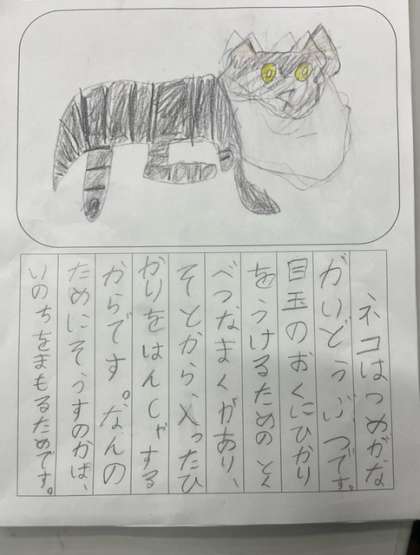 ネコはつめがな
がいどうぶつです。
目玉のおくにひかり
をうけるための とく
べつなまくがあり、
そとから入ったひ
かりをはんしゃする
からです。なんの
ためにそうするのかは、
いのちをまもるためです。